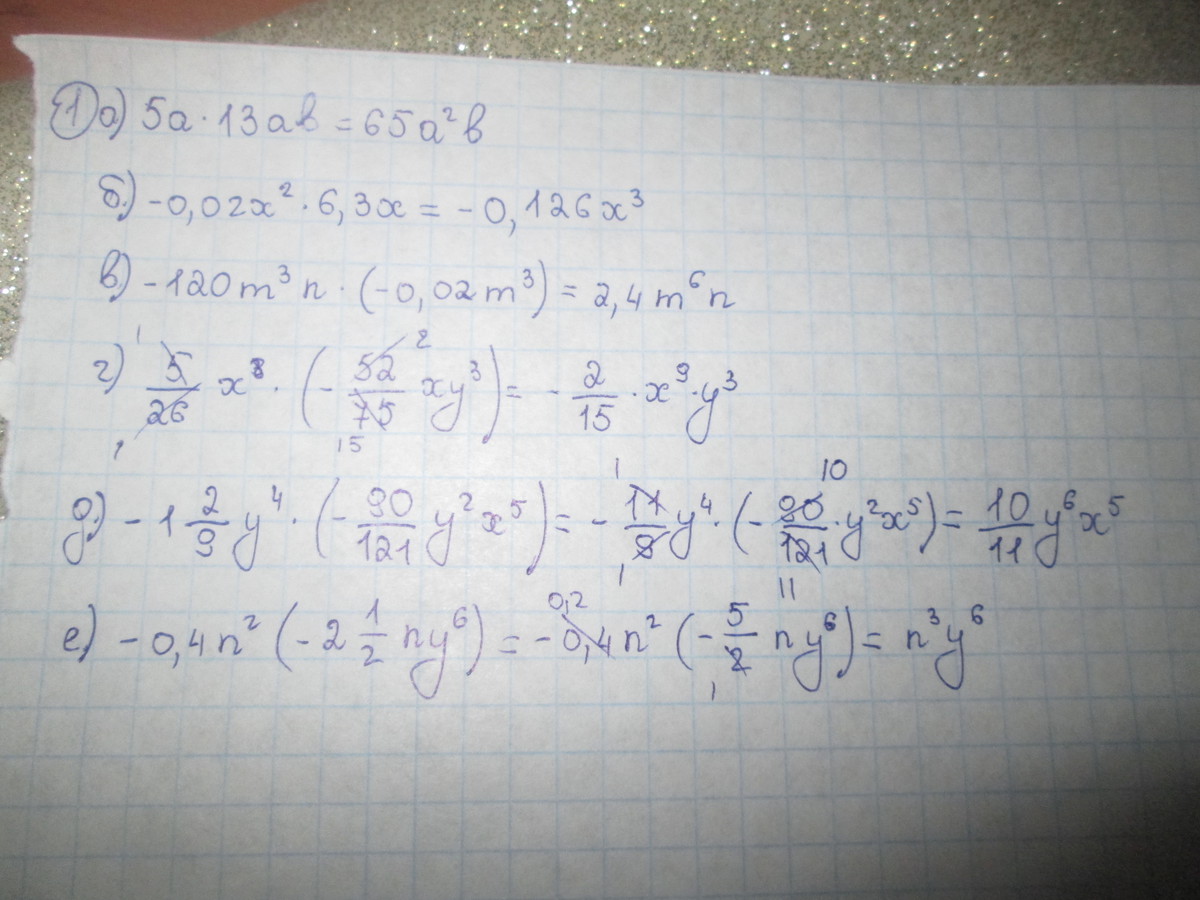 1 а) 5a · 13ab = 65a²b
б) -0,02x² · 6,3x = -0,126x³
в) -120m³n · (-0,02m³) = 2,4m⁶n
г) 5/26 x⁸ · (-52/75 xy³) = -2/15 · x⁹ · y³
д) -1 2/9 y⁴ · (-90/121 y²x⁵) = -11/9 y⁴ · (-90/121 · y²x⁵) = 10/11 y⁶x⁵
е) -0,4n² (-2 1/2 ny⁶) = -0,4n² (-5/2 ny⁶) = n³y⁶